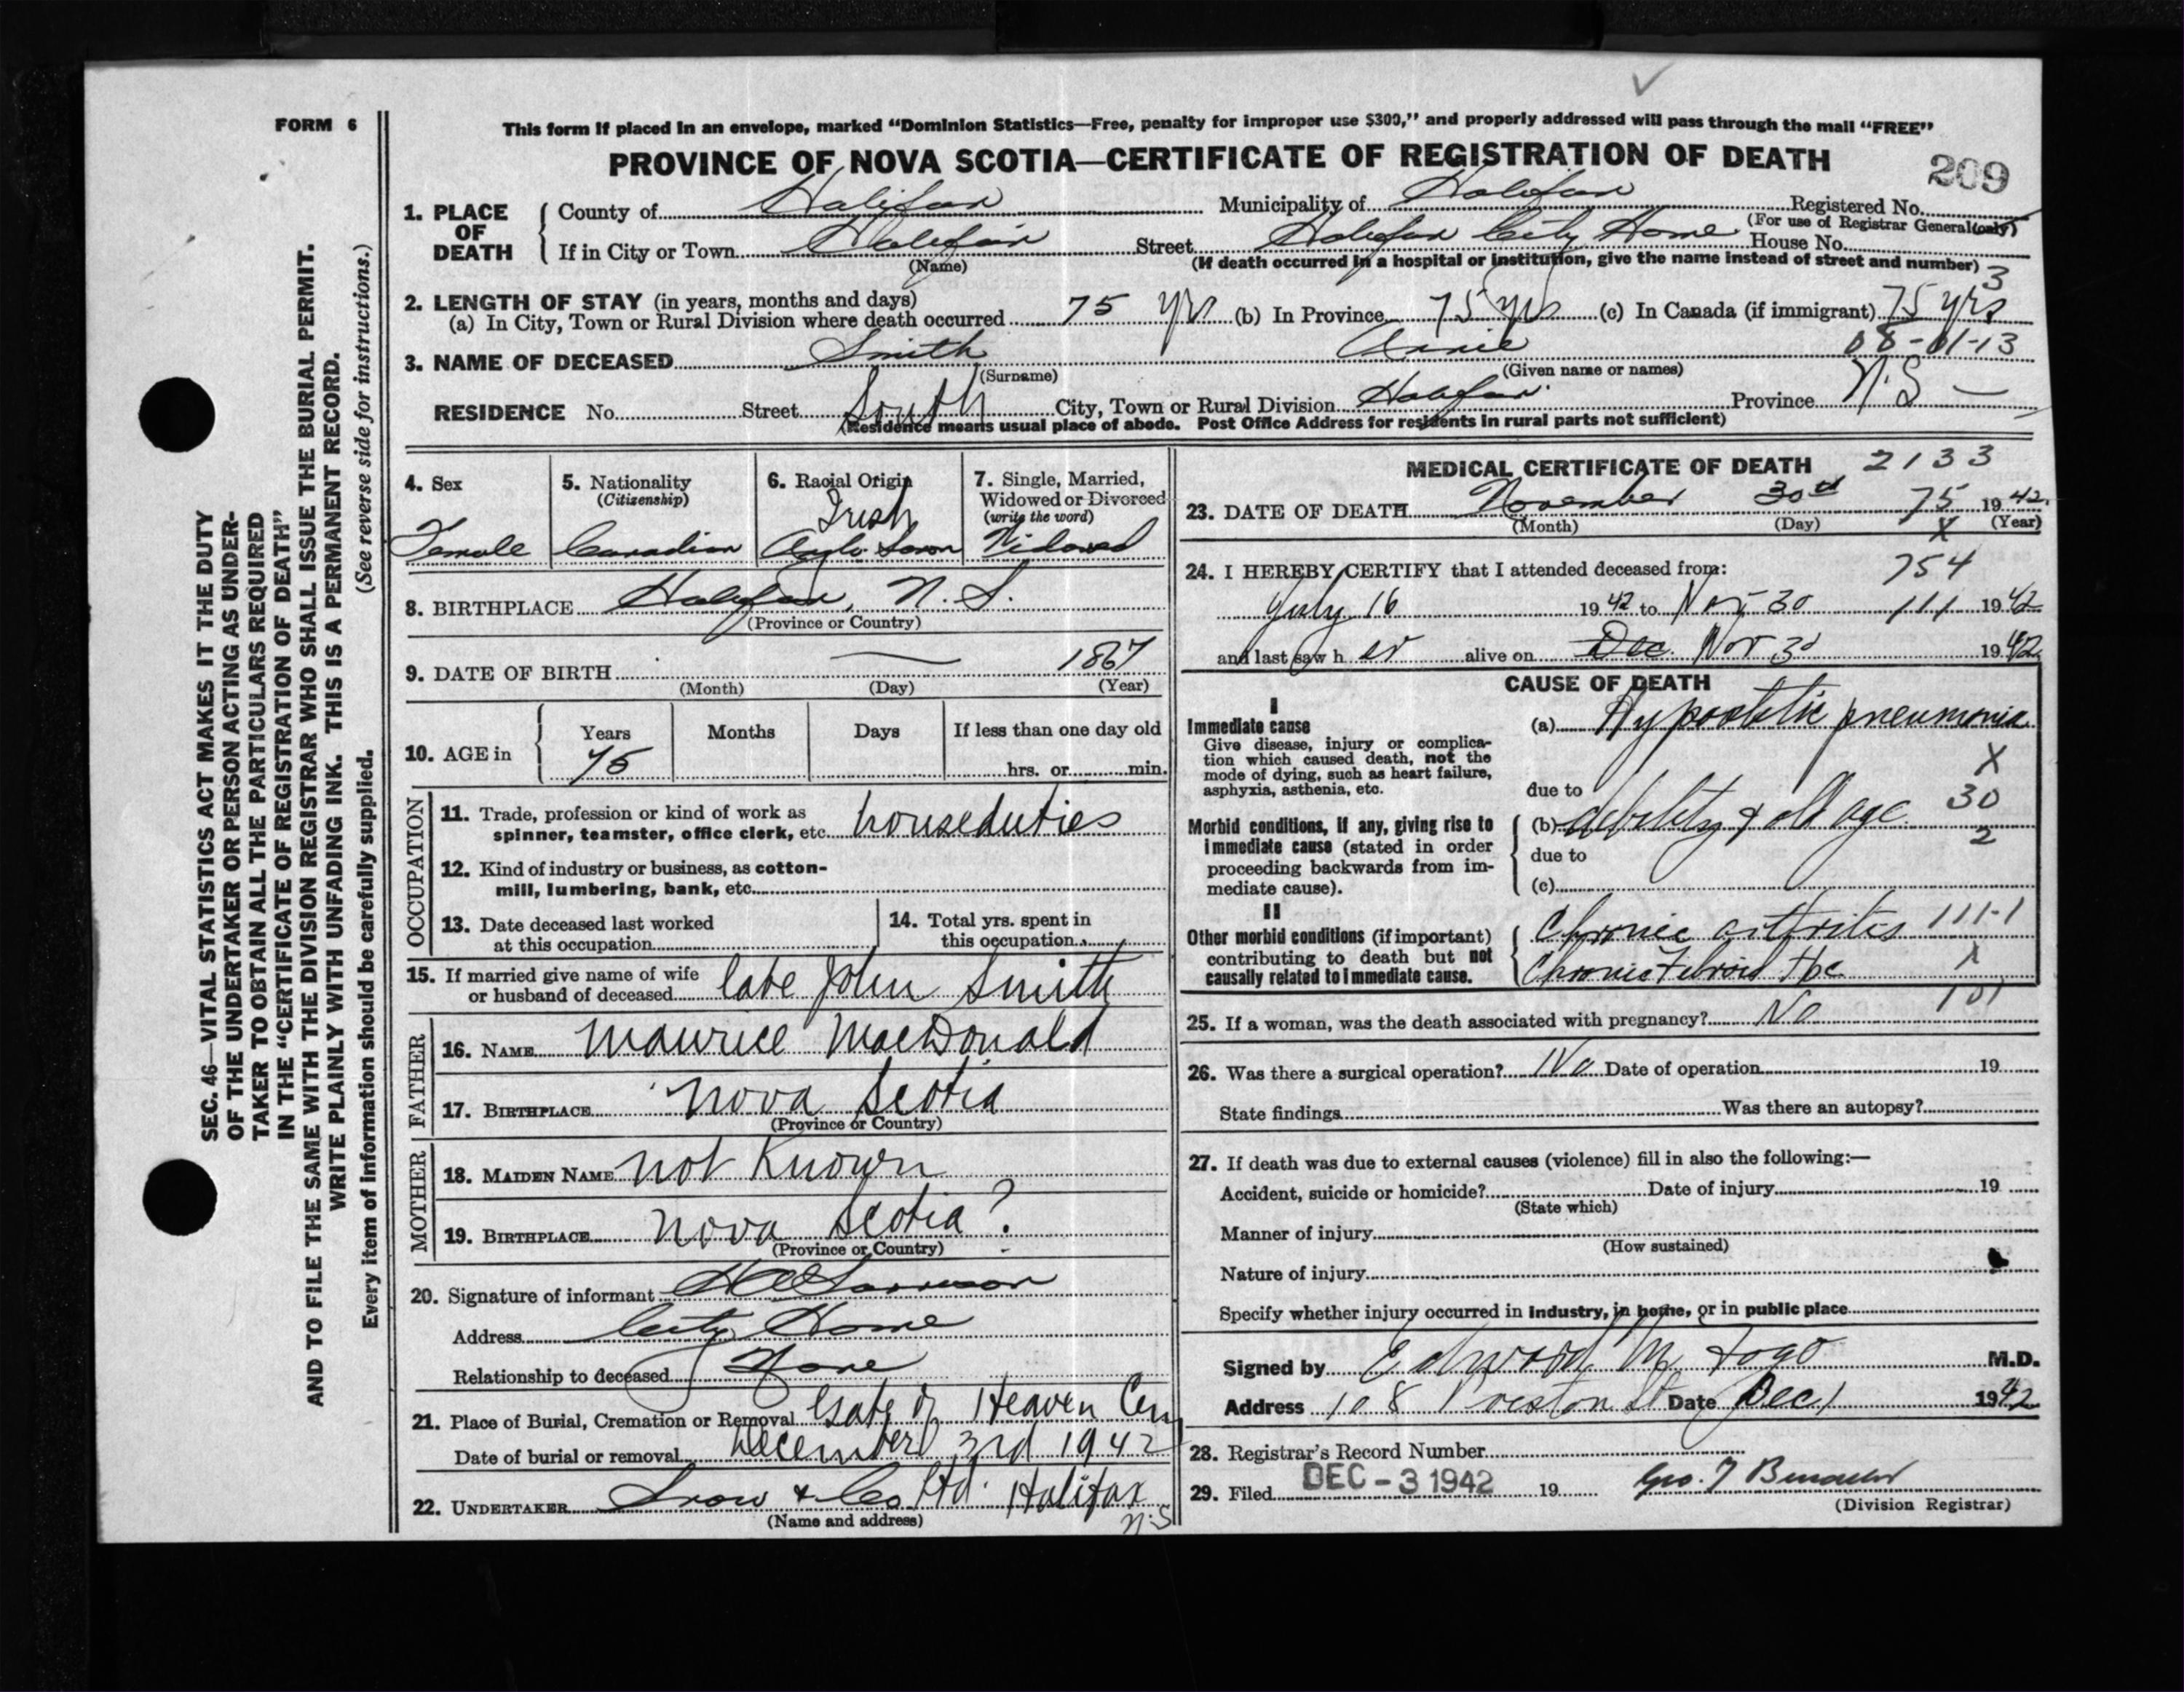 FORM 6
This form if placed in an envelope, marked “Dominion Statistics—Free, penalty for improper use $300,” and properly addressed will pass through the mail “FREE”
PROVINCE OF NOVA SCOTIA—CERTIFICATE OF REGISTRATION OF DEATH
209
1. PLACE OF DEATH
County of Halifax Municipality of Halifax Registered No.
(For use of Registrar General only)
If in City or Town Halifax Street Halifax City Home House No.
(Name) (If death occurred in a hospital or institution, give the name instead of street and number)
3
2. LENGTH OF STAY (in years, months and days)
(a) In City, Town or Rural Division where death occurred 75 yrs (b) In Province 75 yrs (c) In Canada (if immigrant) 75 yrs
08-01-13
3. NAME OF DECEASED Smith Annie
(Surname) (Given name or names)
RESIDENCE No. Street South City, Town or Rural Division Halifax Province N.S —
(Residence means usual place of abode. Post Office Address for residents in rural parts not sufficient)
4. Sex
Female
5. Nationality
(Citizenship)
Canadian
6. Racial Origin
Irish
Anglo Saxon
7. Single, Married,
Widowed or Divorced
(write the word)
Widowed
8. BIRTHPLACE Halifax, N.S.
(Province or Country)
9. DATE OF BIRTH — 1867
(Month) (Day) (Year)
10. AGE in
Years Months Days If less than one day old
75 hrs. or min.
OCCUPATION
11. Trade, profession or kind of work as
spinner, teamster, office clerk, etc. houseduties
12. Kind of industry or business, as cotton-
mill, lumbering, bank, etc.
13. Date deceased last worked
at this occupation
14. Total yrs. spent in
this occupation
15. If married give name of wife
or husband of deceased late John Smith
FATHER
16. NAME Maurice MacDonald
17. BIRTHPLACE Nova Scotia
(Province or Country)
MOTHER
18. MAIDEN NAME not Known
19. BIRTHPLACE Nova Scotia?
(Province or Country)
20. Signature of informant
Address City Home
Relationship to deceased None
21. Place of Burial, Cremation or Removal Gate of Heaven Cem
Date of burial or removal December 3rd 1942
22. UNDERTAKER Snow & Co Ltd. Halifax
N.S
(Name and address)
MEDICAL CERTIFICATE OF DEATH 2133
23. DATE OF DEATH November 30th 75 1942
(Month) (Day) X (Year)
24. I HEREBY CERTIFY that I attended deceased from: 754
July 16 1942 to Nov 30 111 1942
and last saw her alive on Dec. Nov 30 1942
CAUSE OF DEATH
I
Immediate cause
Give disease, injury or complica-
tion which caused death, not the
mode of dying, such as heart failure,
asphyxia, asthenia, etc.
(a) Hypostatic pneumonia
X
due to
Morbid conditions, if any, giving rise to
immediate cause (stated in order
proceeding backwards from im-
mediate cause).
30
(b) debility & old age
2
due to
(c)
II
Other morbid conditions (if important)
contributing to death but not
causally related to immediate cause.
Chronic arthritis 111-1
Chronic Fibroid tbc X
101
25. If a woman, was the death associated with pregnancy? No
26. Was there a surgical operation? No Date of operation 19
State findings Was there an autopsy?
27. If death was due to external causes (violence) fill in also the following:—
Accident, suicide or homicide? Date of injury 19
(State which)
Manner of injury
(How sustained)
Nature of injury
Specify whether injury occurred in industry, in home, or in public place
Signed by M. Fogo M.D.
Address 108 Preston St Date Dec 1 1942
28. Registrar’s Record Number
29. Filed DEC -3 1942 19 Geo. T
(Division Registrar)
SEC. 46—VITAL STATISTICS ACT MAKES IT THE DUTY
OF THE UNDERTAKER OR PERSON ACTING AS UNDER-
TAKER TO OBTAIN ALL THE PARTICULARS REQUIRED
IN THE “CERTIFICATE OF REGISTRATION OF DEATH”
AND TO FILE THE SAME WITH THE DIVISION REGISTRAR WHO SHALL ISSUE THE BURIAL PERMIT.
WRITE PLAINLY WITH UNFADING INK. THIS IS A PERMANENT RECORD.
Every item of information should be carefully supplied. (See reverse side for instructions.)